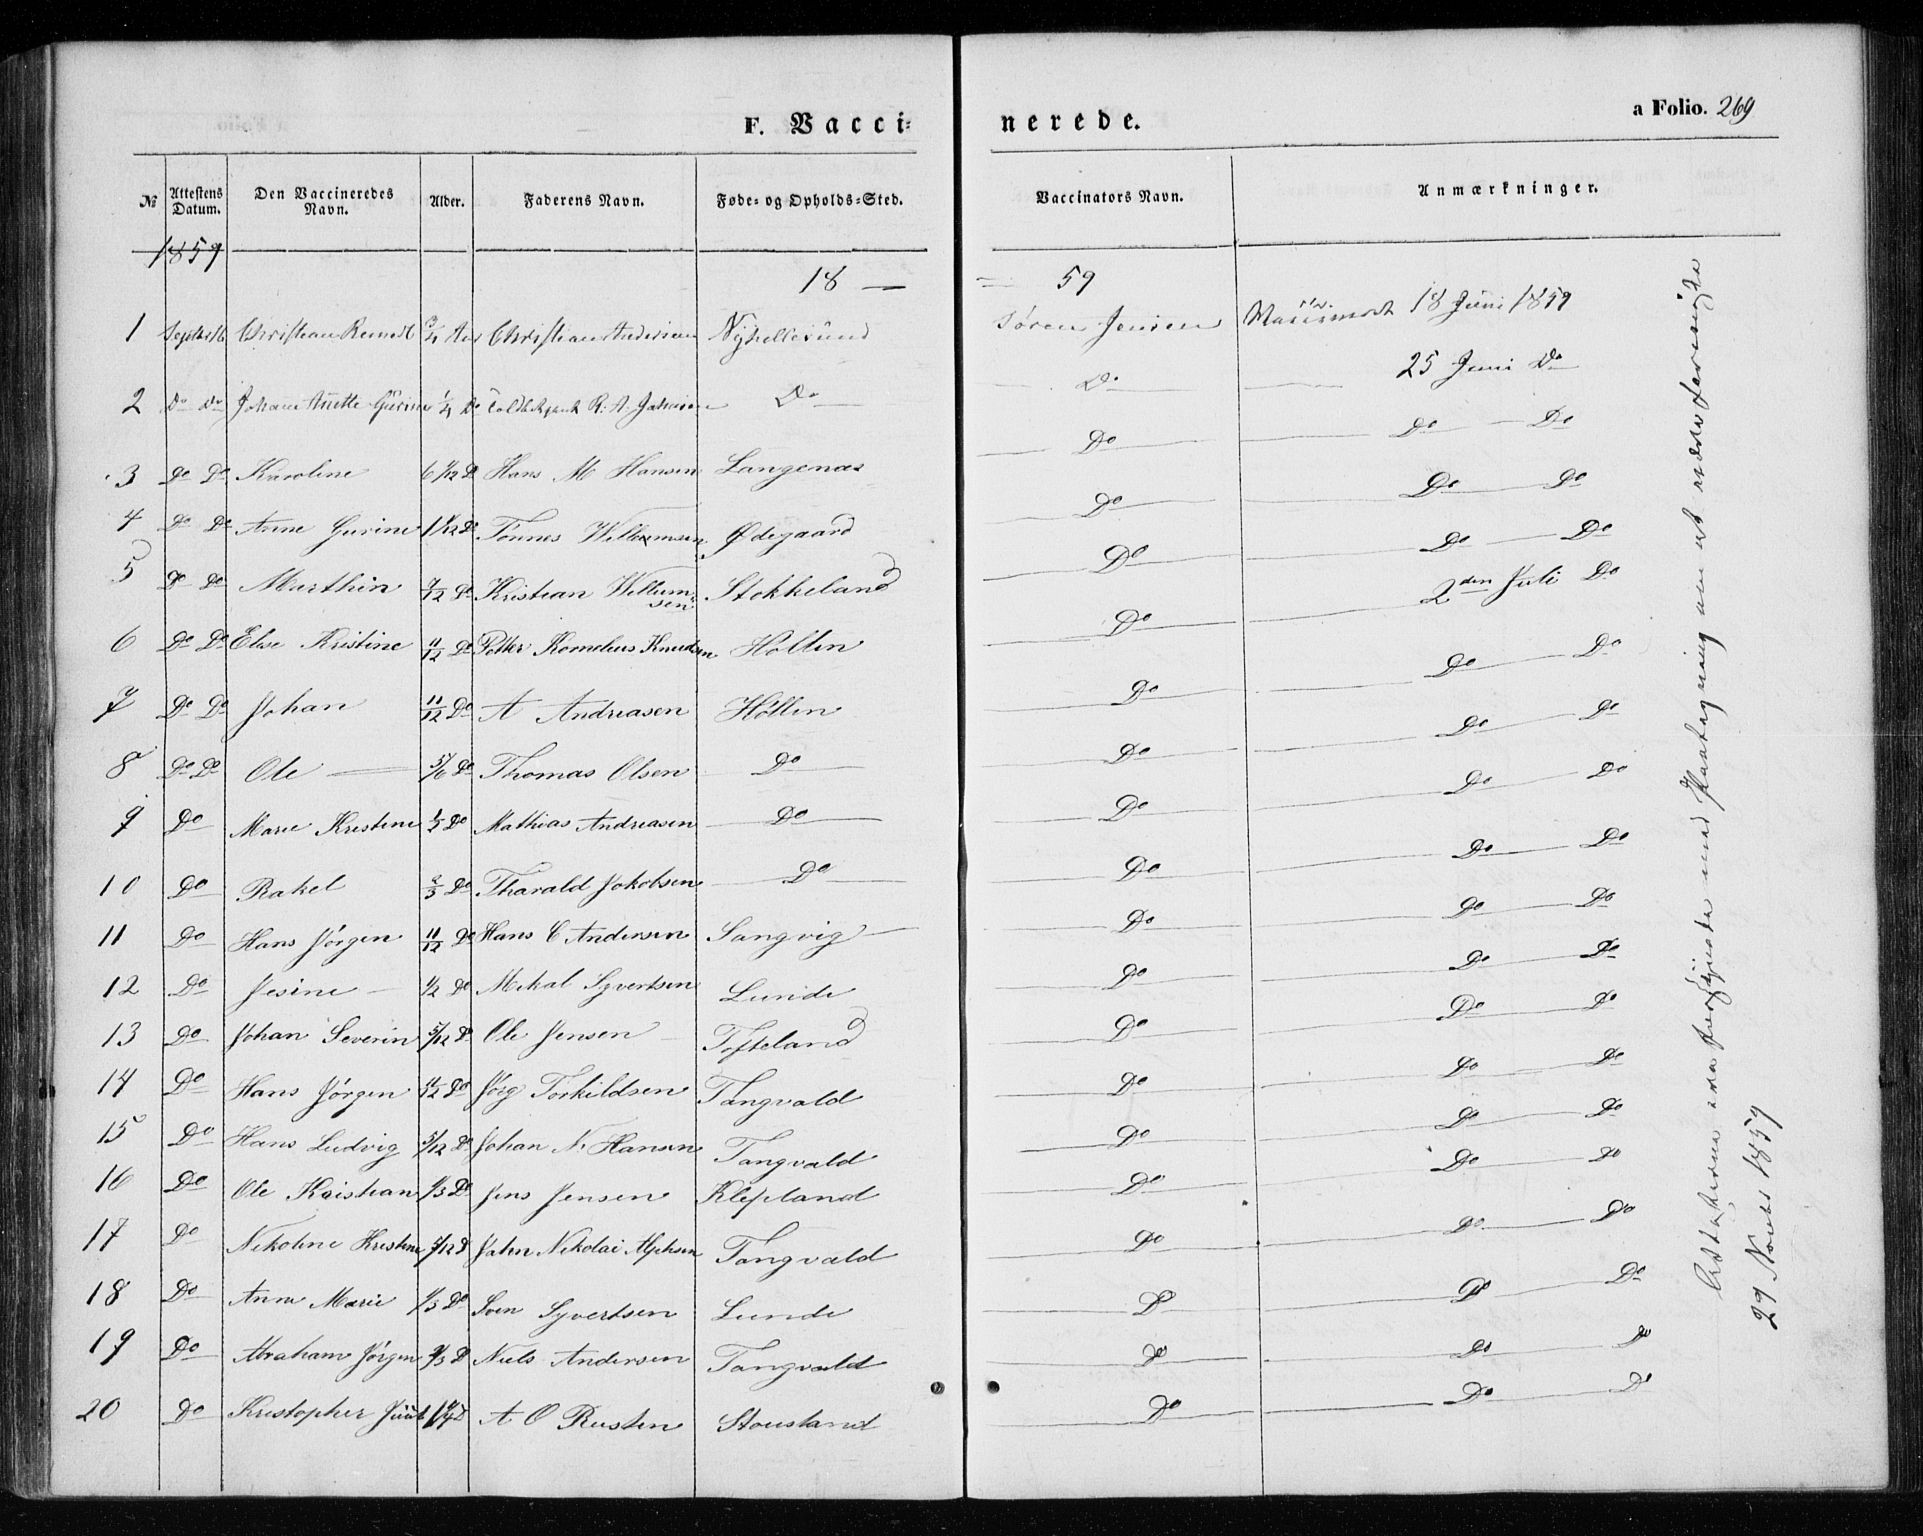 F. Vacci= nerede.
a Folio. 269
№ Attestens Datum. Den Vaccineredes Navn. Alder. Faderens Navn. Føde= og Opholds=Sted. Vaccinators Navn. Anmærkninger.
1859
18 — 59
1 Septbr 16 Christian 3/4 Aar Christian Andersen Nyhellesund Søren Jensen 18 Juni 1859
2 Do Do 1/4 Do Do Do 25 Juni Do
3 Do Do Karoline 6 1/12 D Hans M Hansen Langenæs Do Do Do
4 Do Do Anne Gurine 1 1/12 Do Tønnes Willumsen Ødegaard Do Do Do
5 Do Do Marthin 7/12 Do Kristian Willumsen Stokkeland Do Do Do
6 Do Do Else Kristine 11/12 Do Petter Kornelius Knudsen Høllen Do 2den Juli Do
7 Do Do Johan 11/12 Do A Andreasen Høllen Do Do Do
8 Do Do Ole — 5/6 Do Thomas Olsen Do Do Do Do
9 Do Marie Kristine Do Mathias Andreasen Do Do Do Do
10 Do Rakel 2/3 Do Tharald Jakobsen Do Do Do Do
11 Do Hans Jørgen 11/12 Do Hans C Andersen Sangvig Do Do Do
12 Do Jesine 1/2 Do Mikal Syvertsen Lunde Do Do Do
13 Do Johan Severin 5/12 D Ole Jensen Tofteland Do Do Do
14 Do Hans Jørgen 11/12 Do Jørg Torkildsen Tangvald Do Do Do
15 Do Hans Ludvig 5/12 D Johan N. Hansen Tangvald Do Do Do
16 Do Ole Kristian 1/3 Do Jens Jensen Klepland Do Do Do
17 Do Nikoline Kristine 7/12 D Jahn Nikolai Tangvald Do Do Do
18 Do Anne Marie 1/3 Do Sven Syvertsen Lunde D D Do
19 Do Abraham Jørgen 2/3 D Niels Andersen Tangvald Do Do Do
20 Do Kristopher A O Rusten Stousland Do Do D
29 Novbr 1859